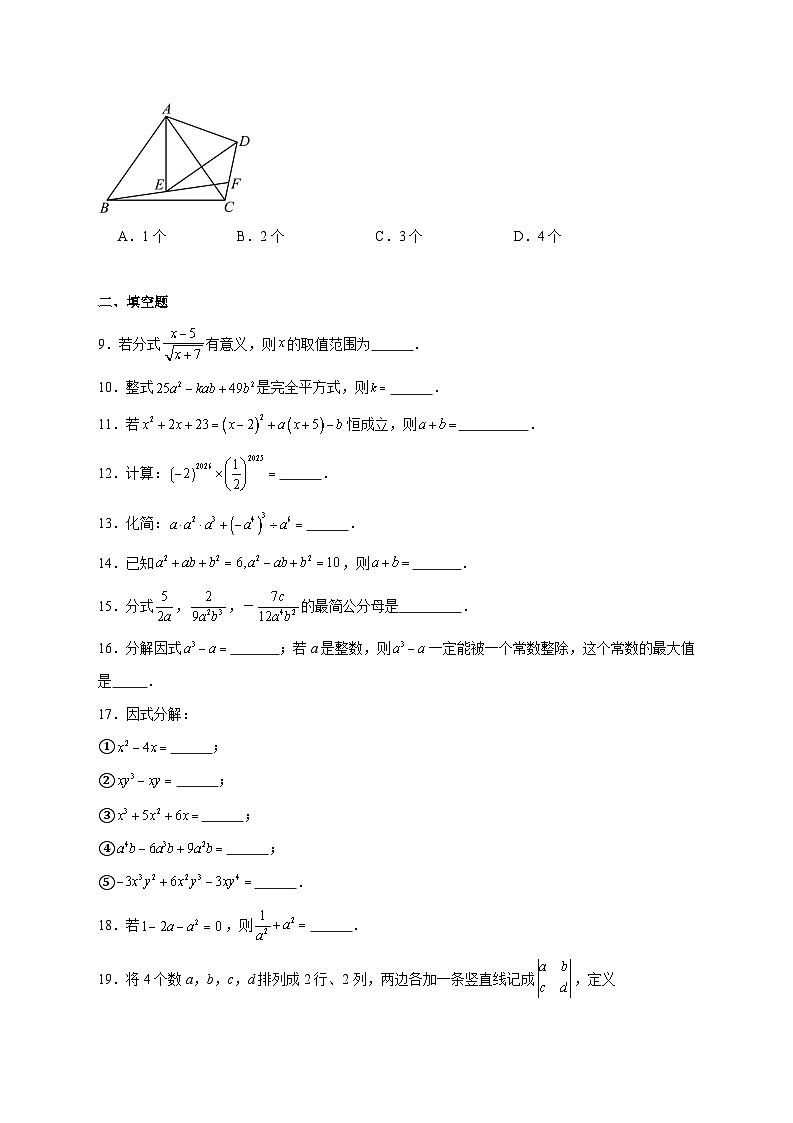 A
D
E
F
B
C
A．1 个 B．2 个 C．3 个 D．4 个
二、填空题
9．若分式 \frac{x-5}{\sqrt{x+7}} 有意义，则 x 的取值范围为______．
10．整式 25a² − kab + 49b² 是完全平方式，则 k = ______．
11．若 x² + 2x + 23 = (x − 2)² + a(x + 5) − b 恒成立，则 a + b = __________．
12．计算：(−2)^{2026} × (\frac{1}{2})^{2025} = ______．
13．化简：a · a² · a³ + (−a⁴)³ ÷ a⁶ = ______．
14．已知 a² + ab + b² = 6, a² − ab + b² = 10，则 a + b = _______．
15．分式 \frac{5}{2a}，\frac{2}{9a²b³}，−\frac{7c}{12a⁴b²} 的最简公分母是_________．
16．分解因式 a³ − a = _______；若 a 是整数，则 a³ − a 一定能被一个常数整除，这个常数的最大值
是_____．
17．因式分解：
①x² − 4x = ______；
②xy³ − xy = ______；
③x³ + 5x² + 6x = ______；
④a⁴b − 6a³b + 9a²b = ______；
⑤−3x³y² + 6x²y³ − 3xy⁴ = ______．
18．若 1 − 2a − a² = 0，则 \frac{1}{a²} + a² = ______．
19．将 4 个数 a，b，c，d 排列成 2 行、2 列，两边各加一条竖直线记成 \begin{vmatrix} a & b \\ c & d \end{vmatrix}，定义